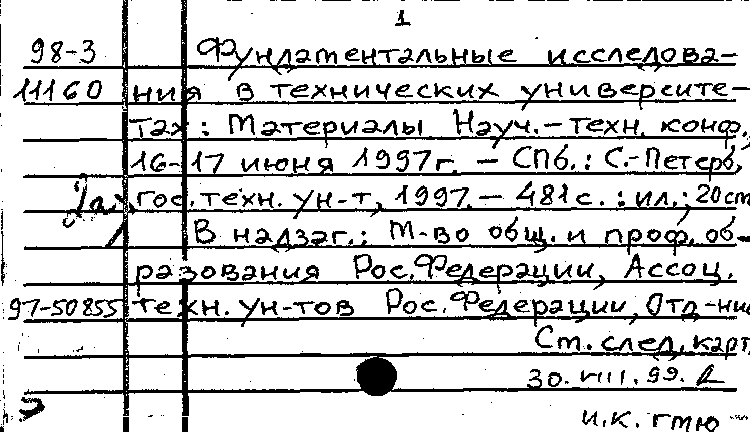 1
98-3 Фундаментальные исследова-
11160 ния в технических университе-
тах: Материалы Науч.-техн. конф.,
16-17 июня 1997г. – СПб.: С.-Петерб,
гос. техн. ун-т, 1997. – 481с. : ил.; 20см
В надзаг.: М-во общ. и проф. об-
разования Рос. Федерации, Ассоц.
97-50855 техн. ун-тов Рос. Федерации, Отд-ние
Ст. след. карт
30.VIII.99.
И.К. гмю